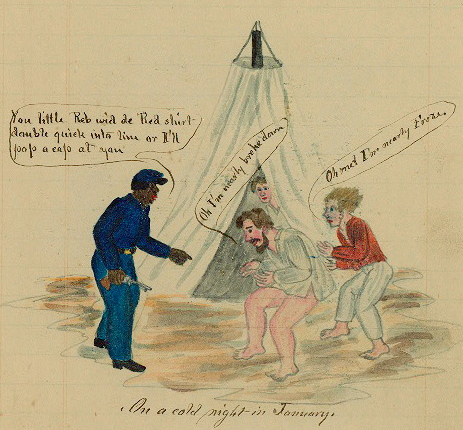 You little Reb wid de Red shirt
double quick into line or I'll
pop a cap at you
Oh I'm nearly broke down
Oh me! I'm nearly froze.
On a cold night in January.